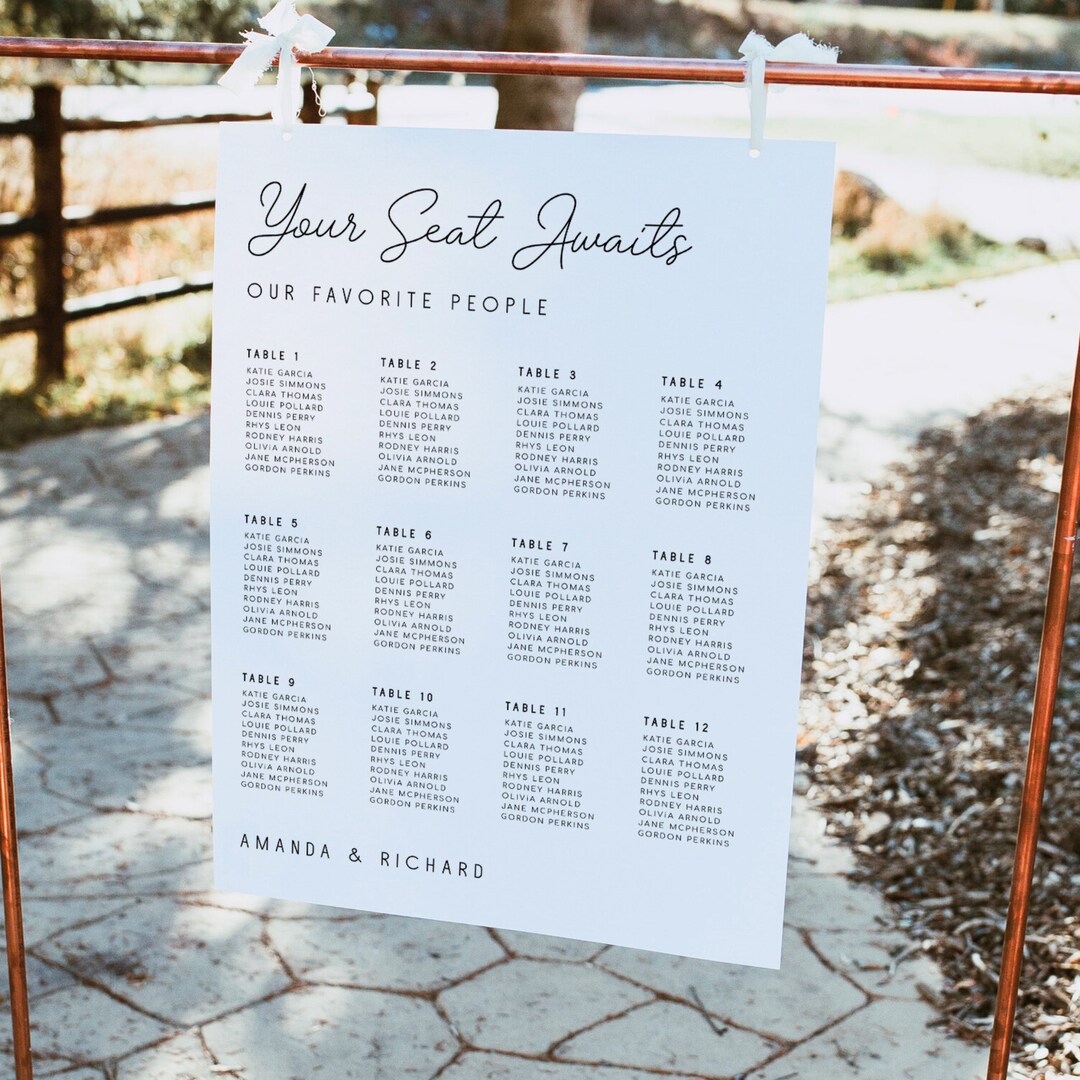 Your Seat Awaits
OUR FAVORITE PEOPLE
TABLE 1
KATIE GARCIA
JOSIE SIMMONS
CLARA THOMAS
LOUIE POLLARD
DENNIS PERRY
RHYS LEON
RODNEY HARRIS
OLIVIA ARNOLD
JANE MCPHERSON
GORDON PERKINS
TABLE 2
KATIE GARCIA
JOSIE SIMMONS
CLARA THOMAS
LOUIE POLLARD
DENNIS PERRY
RHYS LEON
RODNEY HARRIS
OLIVIA ARNOLD
JANE MCPHERSON
GORDON PERKINS
TABLE 3
KATIE GARCIA
JOSIE SIMMONS
CLARA THOMAS
LOUIE POLLARD
DENNIS PERRY
RHYS LEON
RODNEY HARRIS
OLIVIA ARNOLD
JANE MCPHERSON
GORDON PERKINS
TABLE 4
KATIE GARCIA
JOSIE SIMMONS
CLARA THOMAS
LOUIE POLLARD
DENNIS PERRY
RHYS LEON
RODNEY HARRIS
OLIVIA ARNOLD
JANE MCPHERSON
GORDON PERKINS
TABLE 5
KATIE GARCIA
JOSIE SIMMONS
CLARA THOMAS
LOUIE POLLARD
DENNIS PERRY
RHYS LEON
RODNEY HARRIS
OLIVIA ARNOLD
JANE MCPHERSON
GORDON PERKINS
TABLE 6
KATIE GARCIA
JOSIE SIMMONS
CLARA THOMAS
LOUIE POLLARD
DENNIS PERRY
RHYS LEON
RODNEY HARRIS
OLIVIA ARNOLD
JANE MCPHERSON
GORDON PERKINS
TABLE 7
KATIE GARCIA
JOSIE SIMMONS
CLARA THOMAS
LOUIE POLLARD
DENNIS PERRY
RHYS LEON
RODNEY HARRIS
OLIVIA ARNOLD
JANE MCPHERSON
GORDON PERKINS
TABLE 8
KATIE GARCIA
JOSIE SIMMONS
CLARA THOMAS
LOUIE POLLARD
DENNIS PERRY
RHYS LEON
RODNEY HARRIS
OLIVIA ARNOLD
JANE MCPHERSON
GORDON PERKINS
TABLE 9
KATIE GARCIA
JOSIE SIMMONS
CLARA THOMAS
LOUIE POLLARD
DENNIS PERRY
RHYS LEON
RODNEY HARRIS
OLIVIA ARNOLD
JANE MCPHERSON
GORDON PERKINS
TABLE 10
KATIE GARCIA
JOSIE SIMMONS
CLARA THOMAS
LOUIE POLLARD
DENNIS PERRY
RHYS LEON
RODNEY HARRIS
OLIVIA ARNOLD
JANE MCPHERSON
GORDON PERKINS
TABLE 11
KATIE GARCIA
JOSIE SIMMONS
CLARA THOMAS
LOUIE POLLARD
DENNIS PERRY
RHYS LEON
RODNEY HARRIS
OLIVIA ARNOLD
JANE MCPHERSON
GORDON PERKINS
TABLE 12
KATIE GARCIA
JOSIE SIMMONS
CLARA THOMAS
LOUIE POLLARD
DENNIS PERRY
RHYS LEON
RODNEY HARRIS
OLIVIA ARNOLD
JANE MCPHERSON
GORDON PERKINS
AMANDA & RICHARD